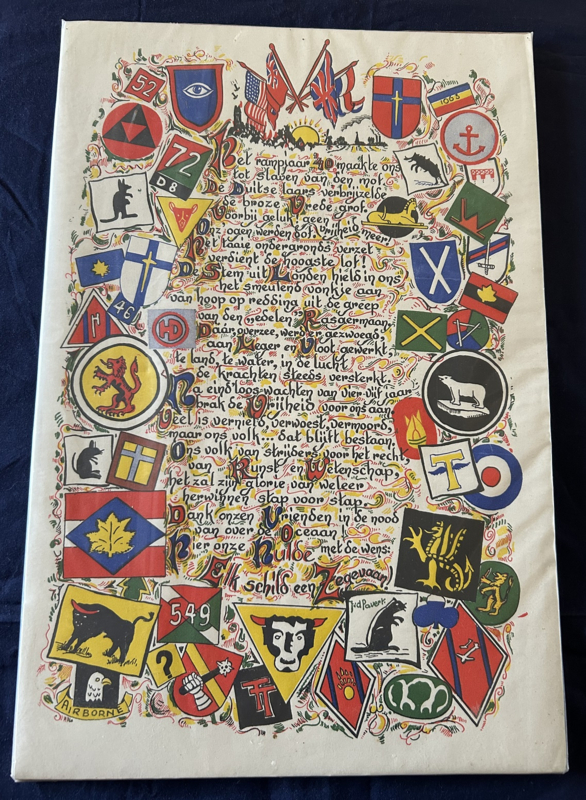 52
1003
72
D 8
Het rampjaar '40 maakte ons
tot slaven van den mof.
De Duitse laars verbrijzelde
de broze Vrede grof.
Voorbij geluk! geen Vrijheid meer!
Onz' ogen werden dof.
Het taaie ondergronds verzet
verdient de hoogste lof!
De Stem uit Londen hield in ons
het smeulend vonkje aan
van hoop op redding uit de greep
van den Gedelen Rasgermaan,
Daar overzee, werd er gezwoegd,
aan Leger en Vloot gewerkt,
te land, te water, in de lucht
de krachten steeds versterkt.
Na eindloos wachten van vier, vijf jaar
brak de Vrijheid voor ons aan.
Veel is vernield, verwoest, vermoord,
maar ons volk... dat blijft bestaan.
Ons volk van strijders voor het recht,
van Kunst en Wetenschap,
het zal zijn glorie van weleer
herwinnen stap voor stap.
Dank onzen Vrienden in de nood
van over de Oceaan
Hier onze Hulde met de wens:
Elk schild een Zegevaan!
46
H
HD
T
549
?
TT
AIRBORNE